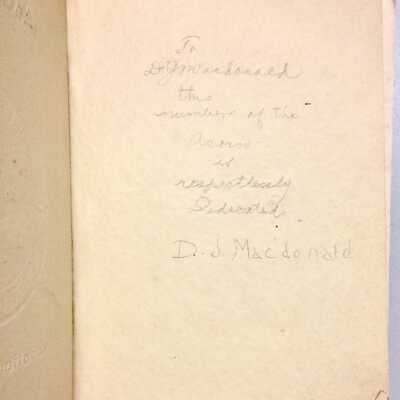 To
D J Macdonald
this
number of the
Acorn
is
respectlessly
Dedicated
D. J. Macdonald